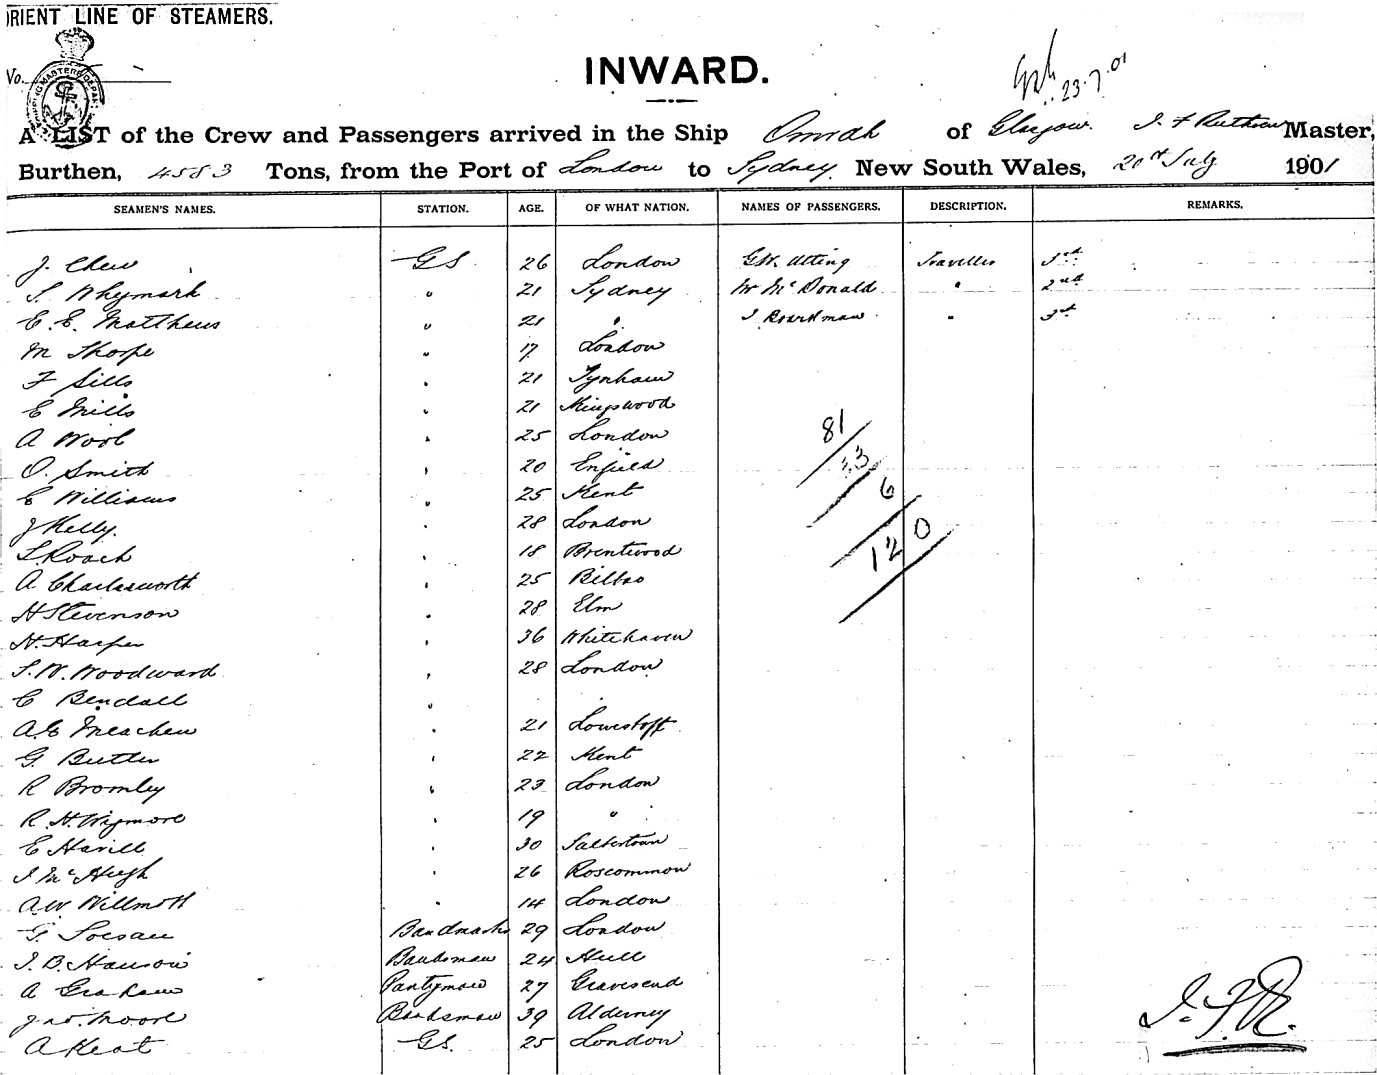 ORIENT LINE OF STEAMERS.
No.
INWARD.
23.7.01
A LIST of the Crew and Passengers arrived in the Ship Omrah of Glasgow. J F Ruthven Master,
Burthen, 4583 Tons, from the Port of London to Sydney. New South Wales, 20th July 1901
SEAMEN'S NAMES. STATION. AGE. OF WHAT NATION. NAMES OF PASSENGERS. DESCRIPTION. REMARKS.
J. Chew GS 26 London G.W. Utting Traveller 1st
S. Whymark " 21 Sydney W McDonald " 2nd
E. E. Matthews " 21 " J Boardman " 3rd
M Thorpe " 17 London
F Sills " 21 Tynham
E Mills " 21 Kingswood
A Wool " 25 London 81
O. Smith " 20 Enfield 33
E Williams " 25 Kent 6
J Kelly. " 28 London
L Roach " 18 Brentwood 120
A Charlesworth " 25 Bilbao
H Stevenson " 28 Elm
H. Harper " 36 Whitehaven
S. W. Woodward " 28 London
C Bendall "
A.E Meachew " 21 Lowestoft
G. Butler " 22 Kent
R Bromley " 23 London
R. H. Wigmore " 19 "
E Havill " 30
J McHugh " 26 Roscommon
A.W Willmott " 14 London
G. 29 London
J. B. Hanson Bandsman 24 Hull
A Graham Pantryman 27 Gravesend
Jno. Moore Bandsman 39 Alderney
A Keat GS. 25 London
J. F. R.